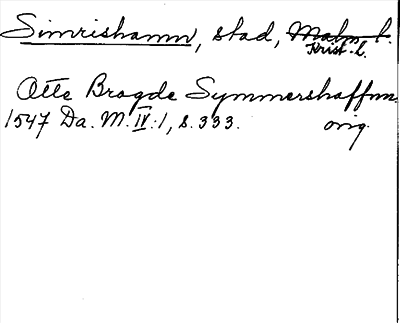 Simrishamn, stad, Malm. l.
Krist. l.
Otte Bragde Symmershaffnn.
1547 Da. M. IV:1, s. 333. orig.